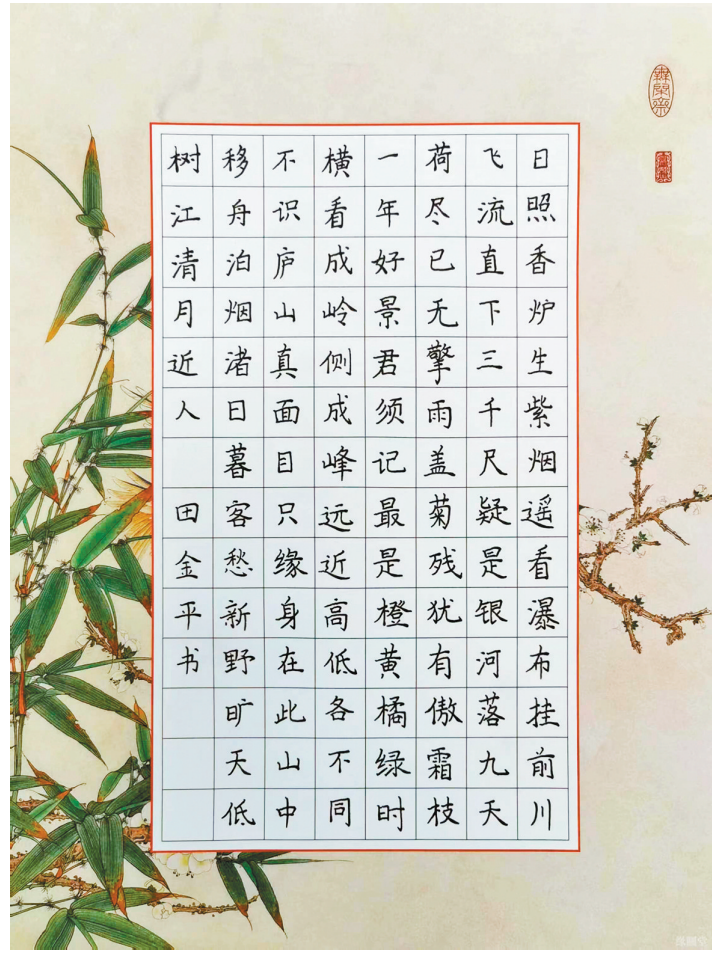 日照香炉生紫烟遥看瀑布挂前川
飞流直下三千尺疑是银河落九天
荷尽已无擎雨盖菊残犹有傲霜枝
一年好景君须记最是橙黄橘绿时
横看成岭侧成峰远近高低各不同
不识庐山真面目只缘身在此山中
移舟泊烟渚日暮客愁新野旷天低
树江清月近人 田金平书